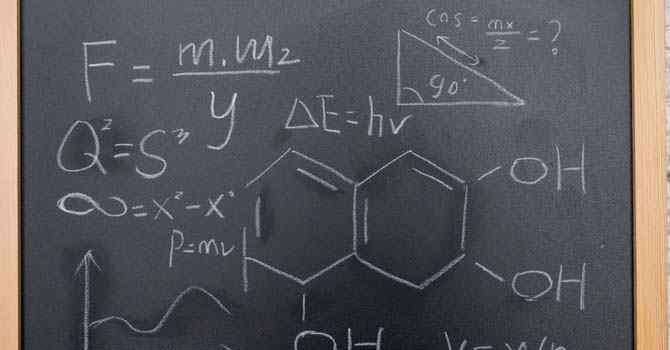 F = m.m₂/y
cos = mx/2 = ?
90°
ΔE=hν
Q²=S"
∞=x²-x
p=mv
OH
OH
OH